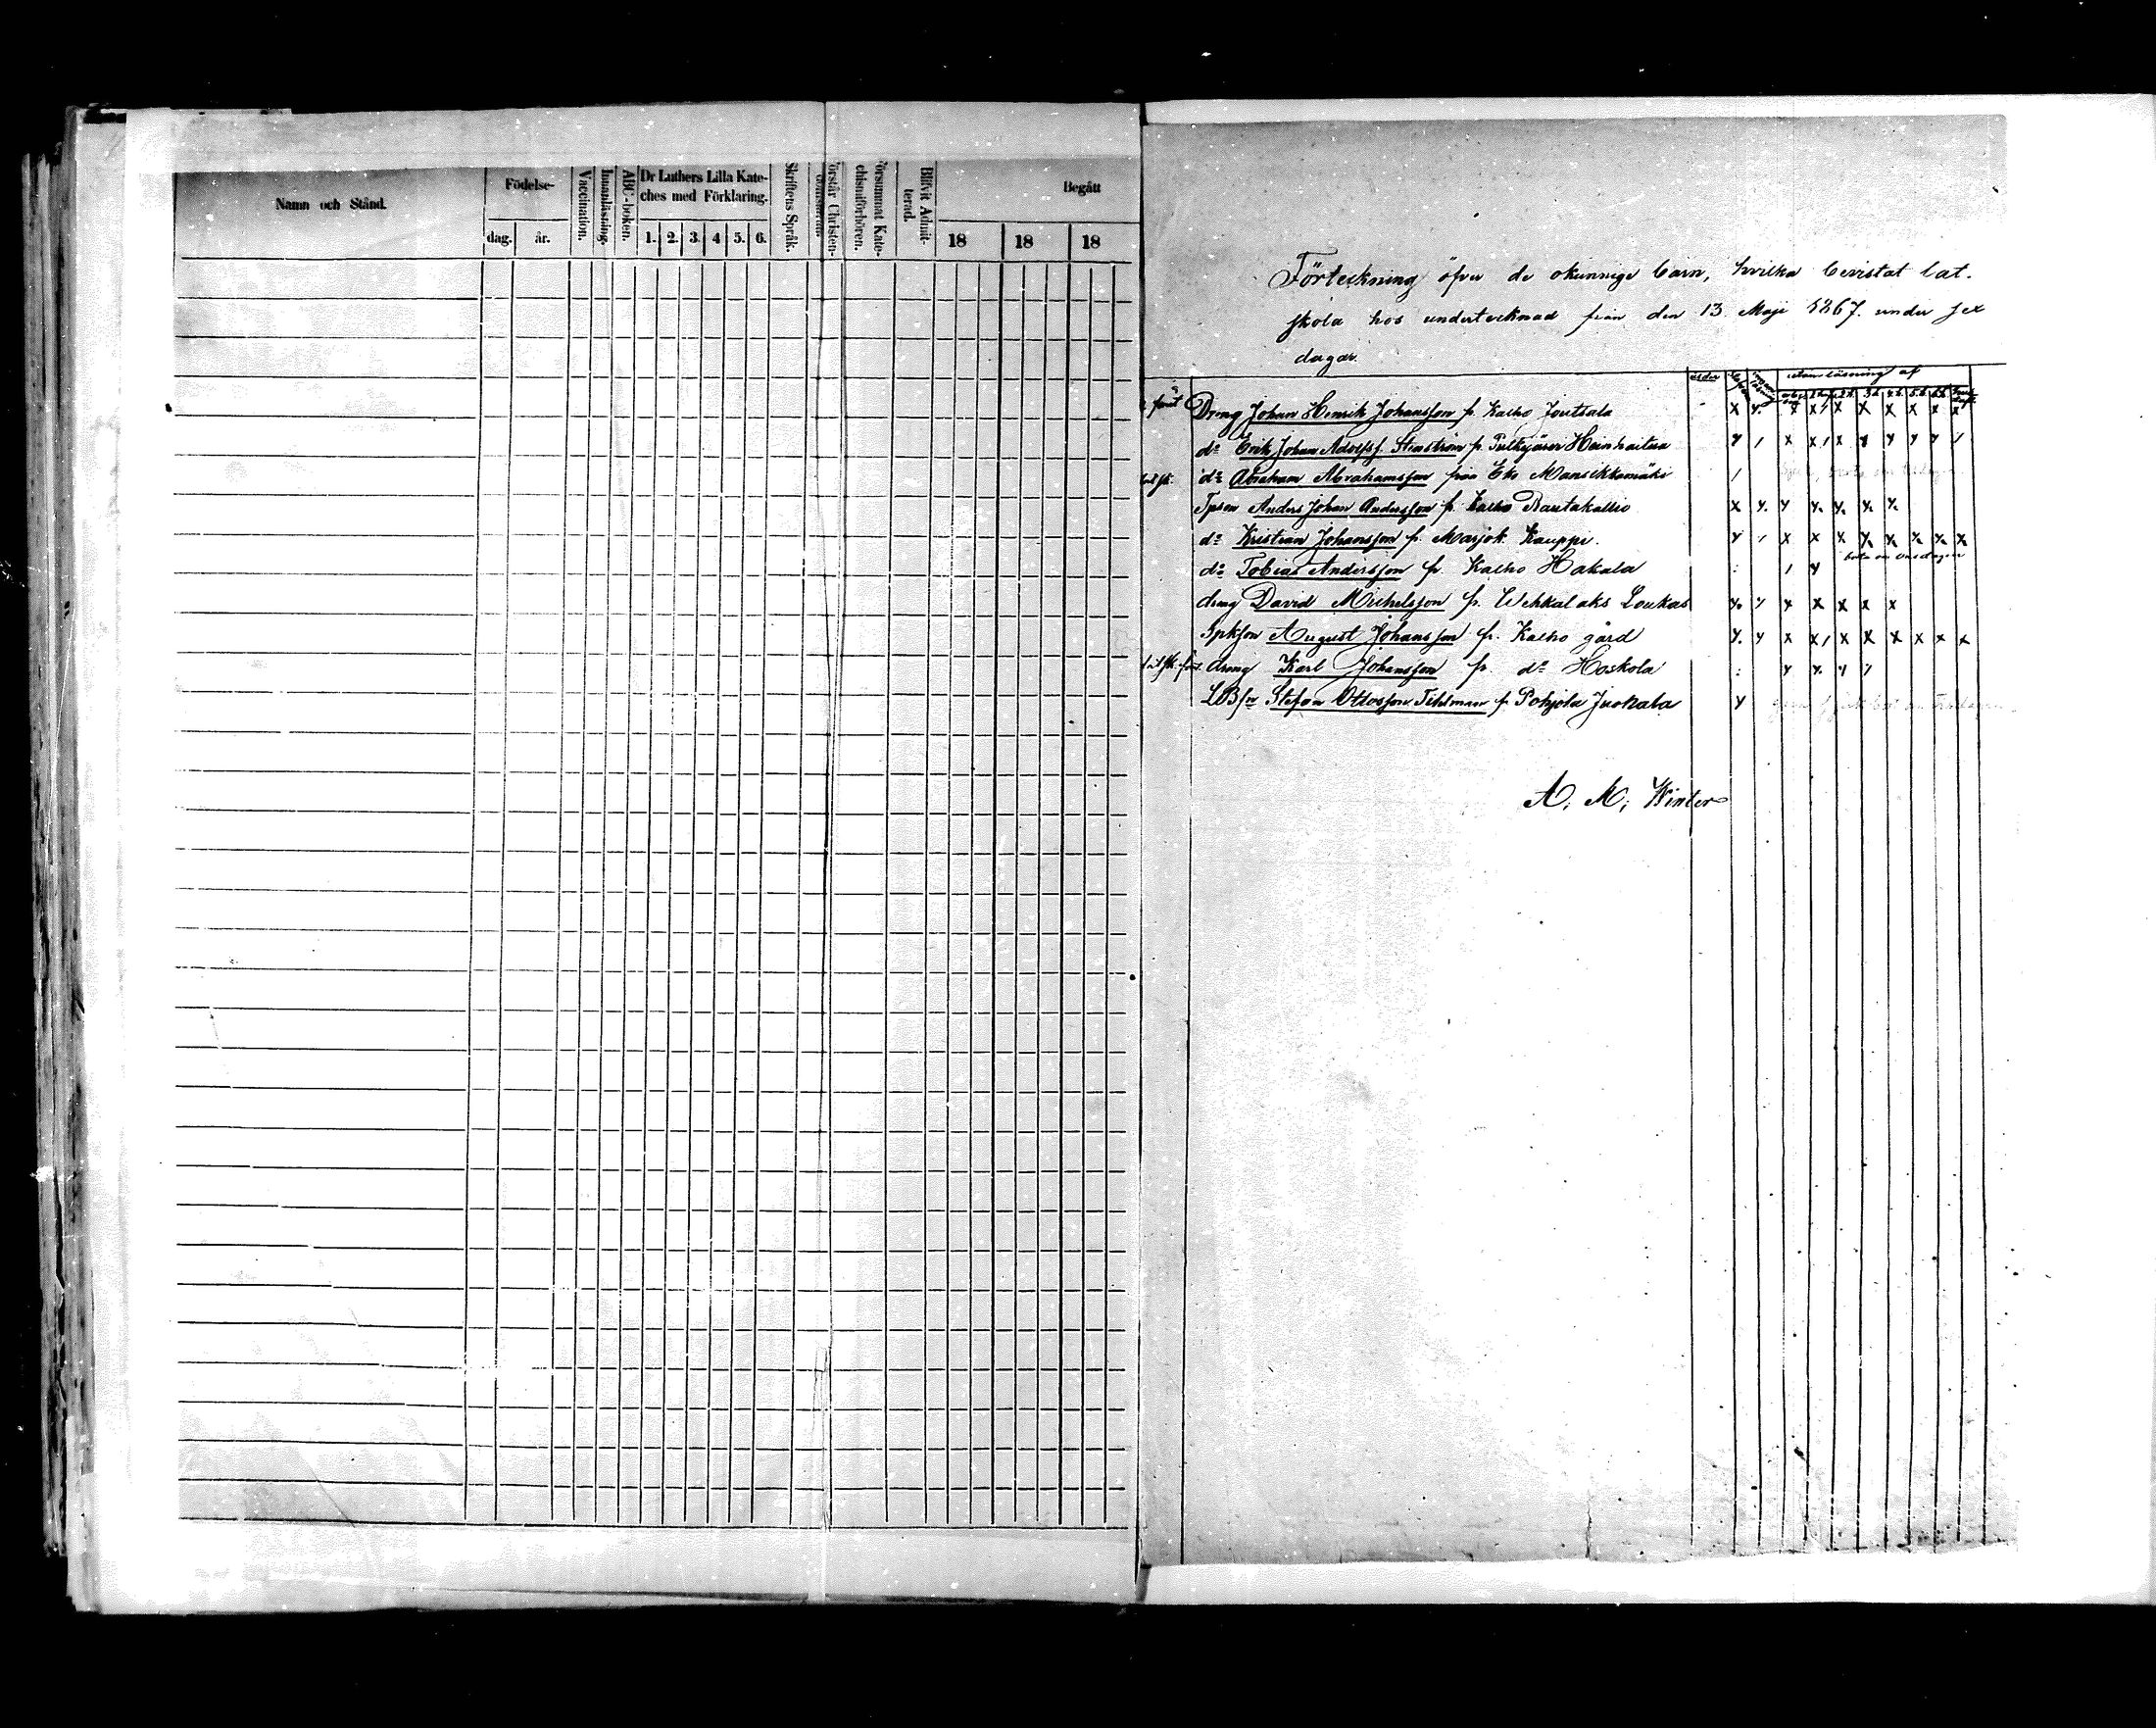 Namn och Stånd.
Födelse-
dag. år.
Vaccination.
Innanläsning.
ABC-boken.
Dr Luthers Lilla Kate-
ches med Förklaring.
1. 2. 3. 4 5. 6.
Skriftens Språk.
Förstår Christen-
domsläran.
Försummat Kate-
chismiförhören.
Blifvit Admit-
terad.
Begått
18 18 18
Förteckning öfver de okunnige barn, hvilka bevistat bat.
skola hos undertecknad från den 13 Maji 1867. under sex
dagar.
ålder
utan läsning af
Dreng Johan Henrik Johansson fr. Kalho Joutsala
do Erik Johan Adolfs. Stenström fr. Pulkjärvi Heinhaitua
do Abraham Abrahamsson från Eko Mansikkamäki
Tpson Anders Johan Andersson fr. Kalho Rautakallio
do Kristian Johansson fr. Marjok. Kauppi.
do Tobias Andersson fr. Kalho Hakala
dreng David Michelsson fr. Wehkalaks Loukas
Spkson August Johansson fr. Kalho gård
dreng Karl Johansson fr. do Hoskola
LBsn Stefan Ottosson Tihlman fr Pohjola Juokala
A. M. Winter